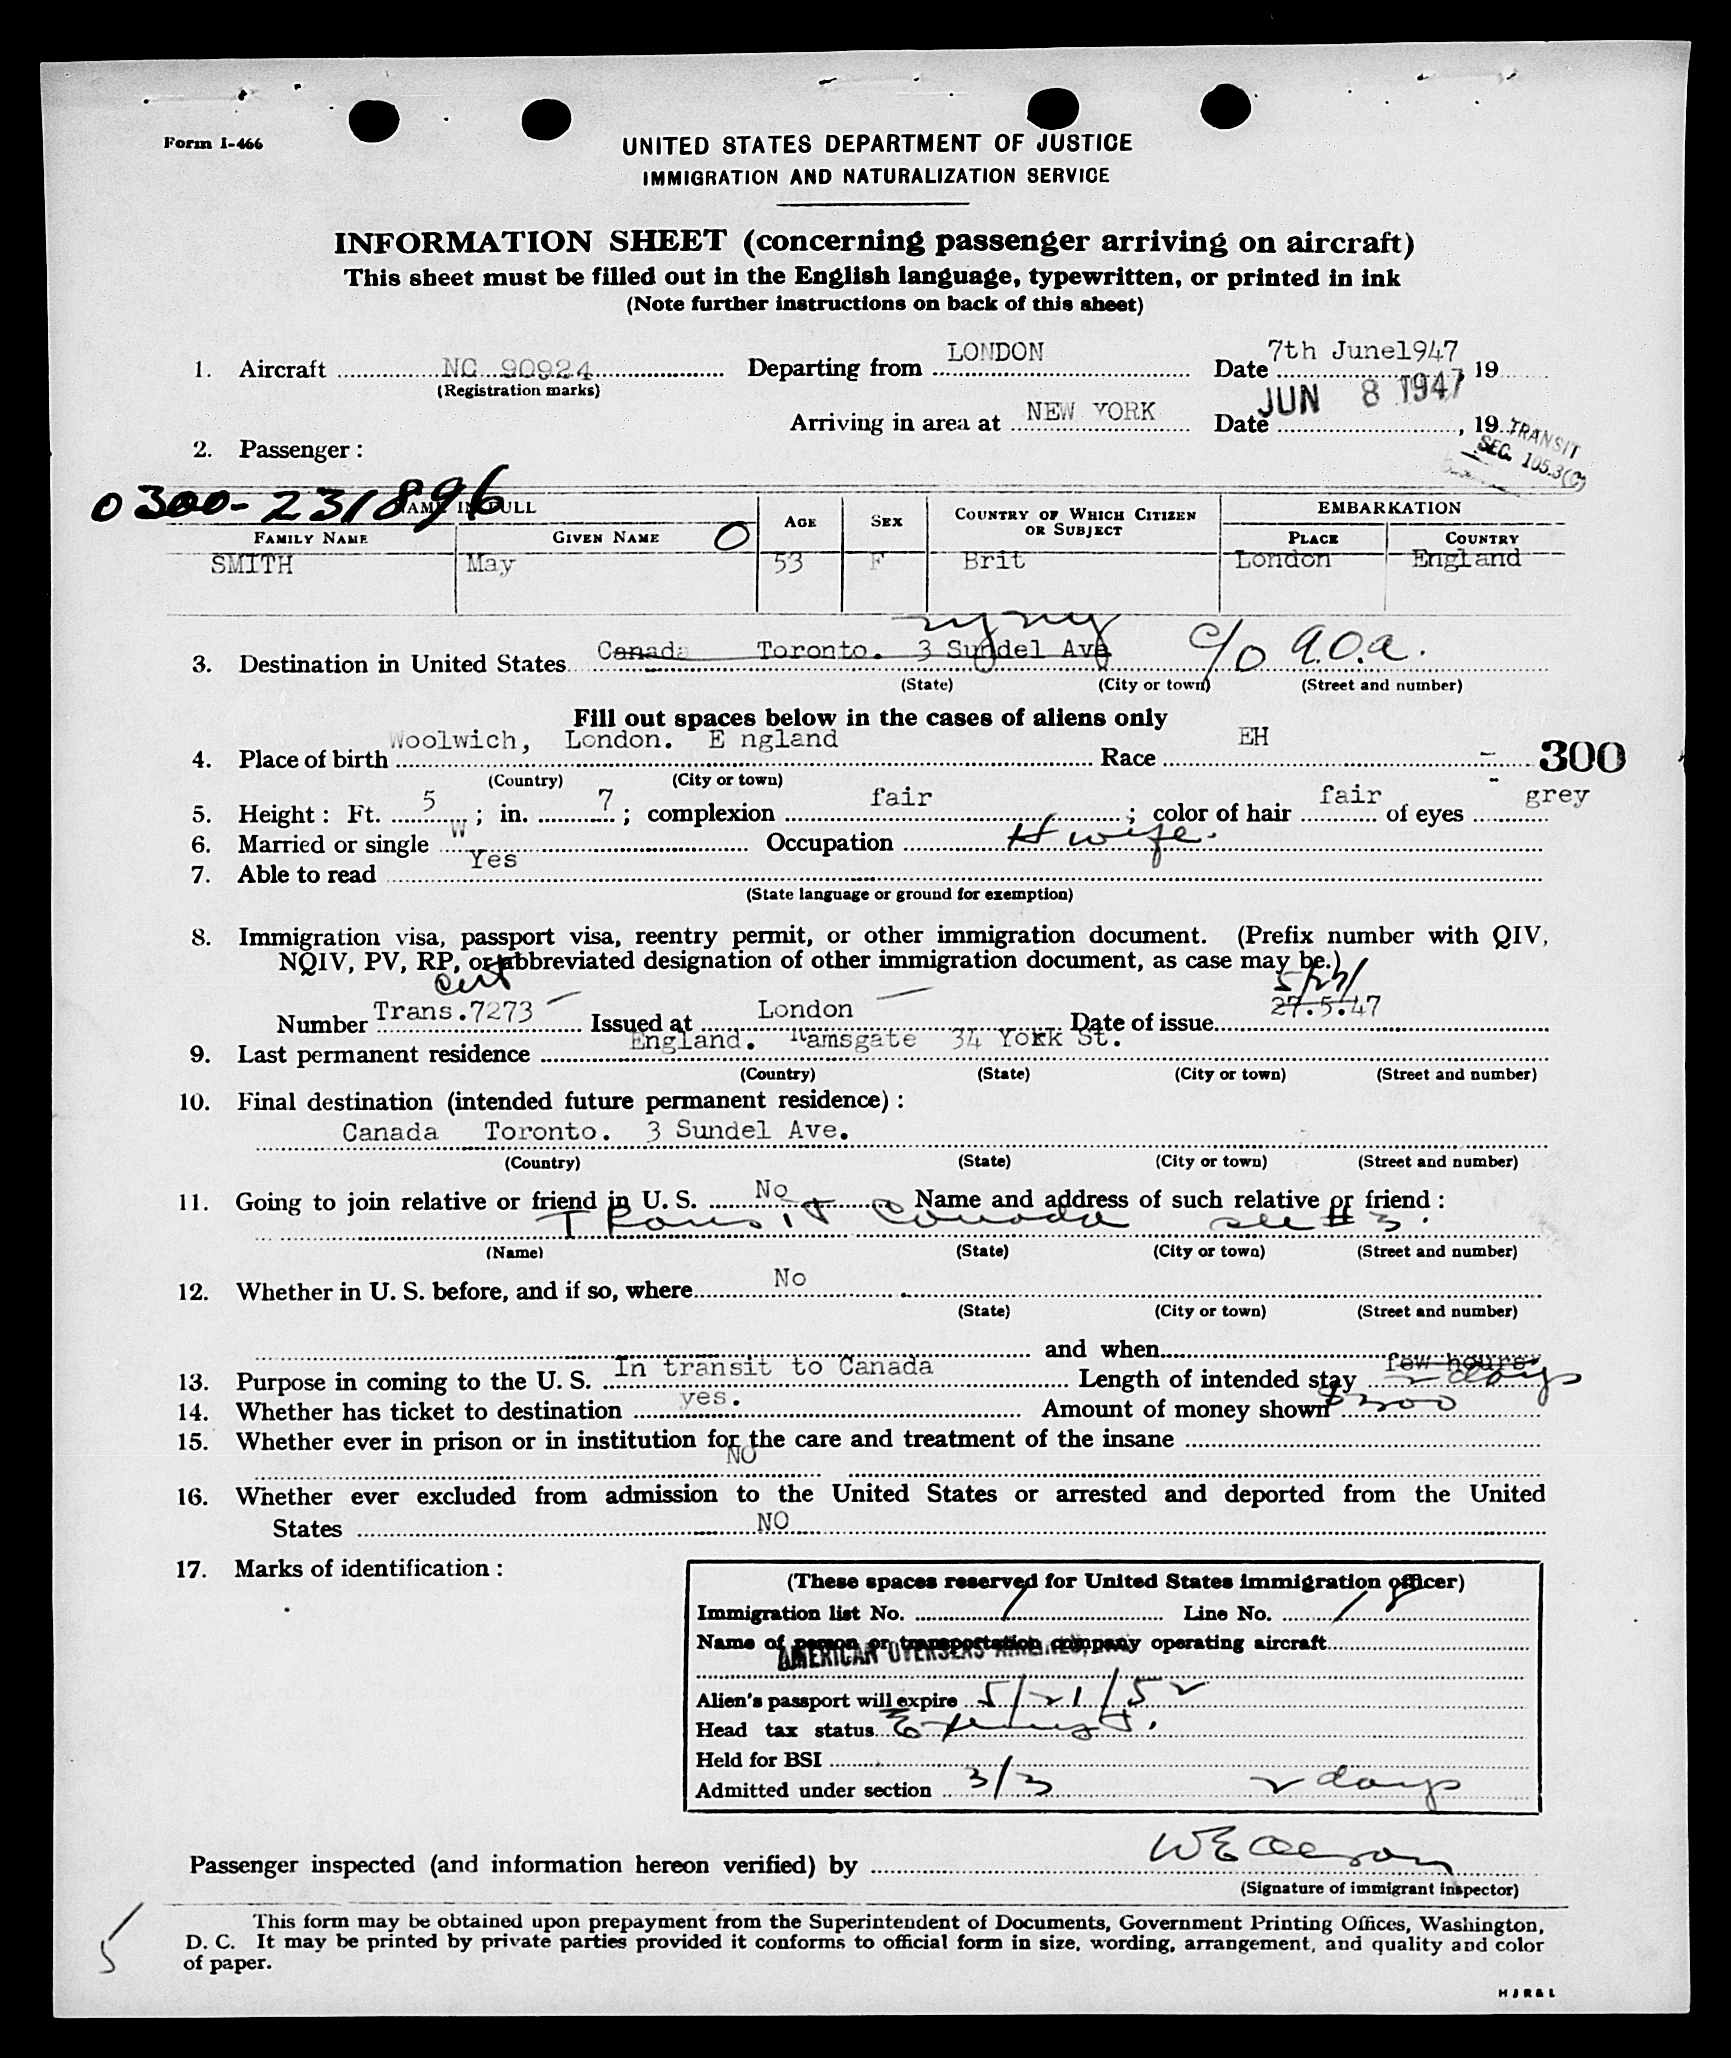 Form I-466
UNITED STATES DEPARTMENT OF JUSTICE
IMMIGRATION AND NATURALIZATION SERVICE
INFORMATION SHEET (concerning passenger arriving on aircraft)
This sheet must be filled out in the English language, typewritten, or printed in ink
(Note further instructions on back of this sheet)
1. Aircraft NC 90924 Departing from LONDON Date 7th June1947, 19
(Registration marks)
Arriving in area at NEW YORK Date JUN 8 1947, 19
TRANSIT
SEC. 105.3(C)
2. Passenger :
0300-231896
NAME IN FULL AGE SEX COUNTRY OF WHICH CITIZEN OR SUBJECT EMBARKATION
FAMILY NAME GIVEN NAME O PLACE COUNTRY
SMITH May 53 F Brit London England
ny ny
3. Destination in United States Canada Toronto. 3 Sundel Ave c/o a.o.a.
(State) (City or town) (Street and number)
Fill out spaces below in the cases of aliens only
4. Place of birth Woolwich, London. E ngland Race EH - 300
(Country) (City or town)
5. Height : Ft. 5 ; in. 7 ; complexion fair ; color of hair fair of eyes grey
6. Married or single W Occupation H wife.
7. Able to read Yes
(State language or ground for exemption)
8. Immigration visa, passport visa, reentry permit, or other immigration document. (Prefix number with QIV,
NQIV, PV, RP, or abbreviated designation of other immigration document, as case may be.)
Cert 5/27/
Number Trans.7273 Issued at London Date of issue 27.5.47
9. Last permanent residence England. Ramsgate 34 York St.
(Country) (State) (City or town) (Street and number)
10. Final destination (intended future permanent residence) :
Canada Toronto. 3 Sundel Ave.
(Country) (State) (City or town) (Street and number)
11. Going to join relative or friend in U. S. No Name and address of such relative or friend :
Transit Canada see # 3.
(Name) (State) (City or town) (Street and number)
12. Whether in U. S. before, and if so, where No
(State) (City or town) (Street and number)
and when
13. Purpose in coming to the U. S. In transit to Canada Length of intended stay few hours 2 days
14. Whether has ticket to destination yes. Amount of money shown $200
15. Whether ever in prison or in institution for the care and treatment of the insane
NO
16. Whether ever excluded from admission to the United States or arrested and deported from the United
States NO
17. Marks of identification :
(These spaces reserved for United States immigration officer)
Immigration list No. 1 Line No. 18
Name of person or transportation company operating aircraft
AMERICAN OVERSEAS AIRLINES,
Alien's passport will expire 5/21/52
Head tax status Exempt.
Held for BSI
Admitted under section 3/3 2 days
Passenger inspected (and information hereon verified) by
(Signature of immigrant inspector)
This form may be obtained upon prepayment from the Superintendent of Documents, Government Printing Offices, Washington,
D. C. It may be printed by private parties provided it conforms to official form in size, wording, arrangement, and quality and color
of paper.
5
H J R & L